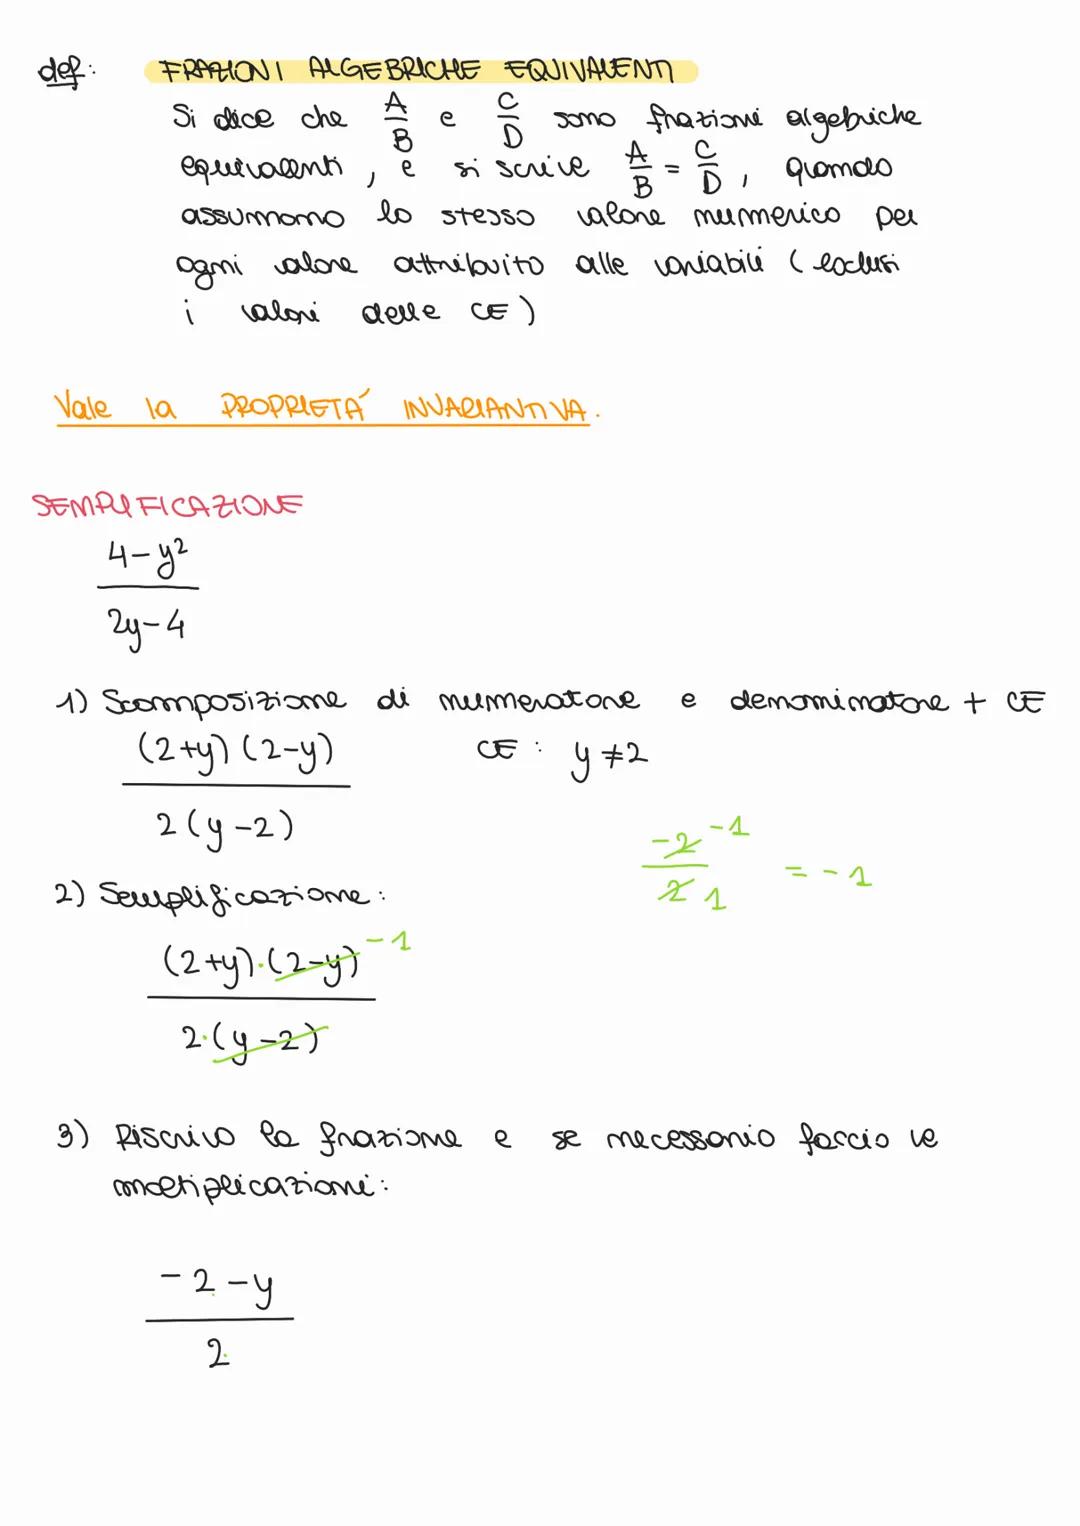 def: FRAZIONI ALGEBRICHE EQUIVALENTI
Si dice che A/B e C/D sono frazioni algebriche
equivalenti, e si scrive A/B = C/D, quando
assumono lo stesso valore numerico per
ogni valore attribuito alle variabili (esclusi
i valori delle CE)
Vale la PROPRIETÀ INVARIANTIVA.
SEMPLIFICAZIONE
4-y²
2y-4
1) Scomposizione di numeratore e denominatore + CE
(2+y)(2-y) CE: y≠2
2(y-2)
-2 -1
2 1 = -1
2) Semplificazione:
(2+y)·(2-y) -1
2·(y-2)
3) Riscrivo la frazione e se necessario faccio le
moltiplicazioni:
-2-y
2